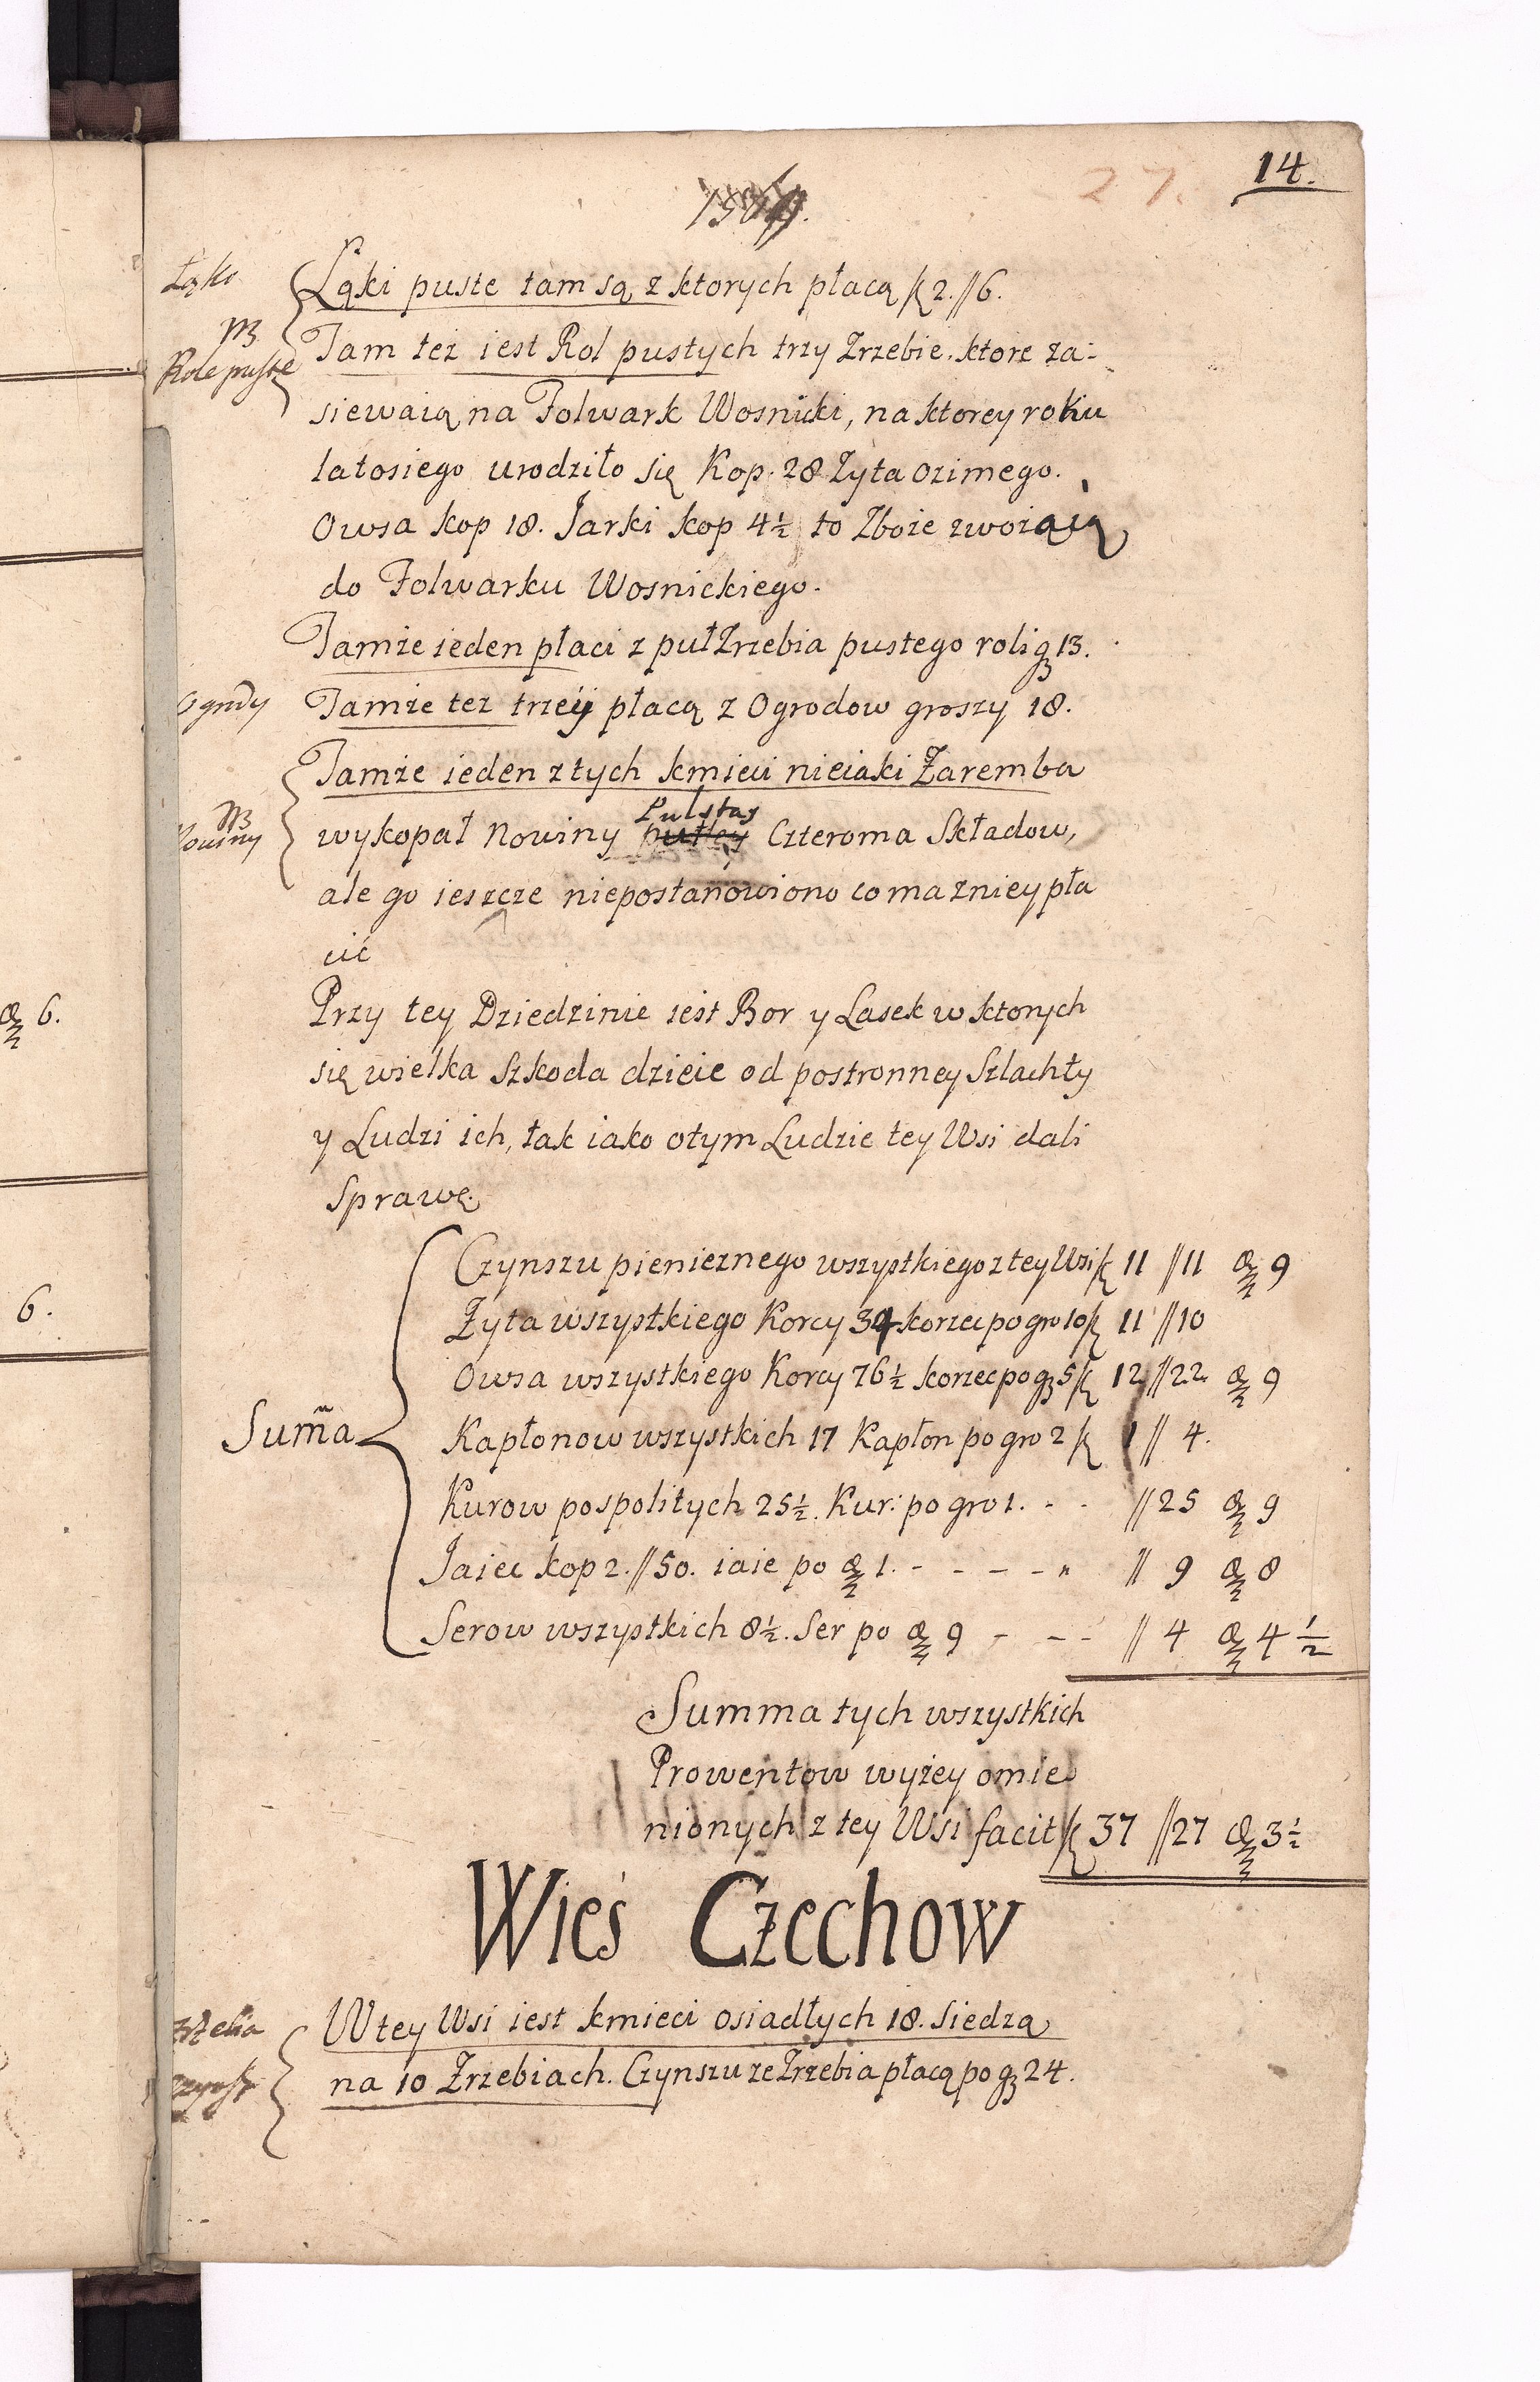 27. 14.
Łąki
Łąki puste tam są z ktorych płacą ꝶ 2.//6.
Role puste
Tam też iest Rol pustych trzy Zrzebie. ktore za-
siewaią na Folwark Wosnicki, na ktorey roku
latosiego urodziło się Kop. 28 Zyta Ozimego.
Owsa kop 18. Jarki kop 4½ to Zboże zwożaią
do Folwarku Wosnickiego.
Tamże ieden płaci z pułZrzebia pustego roli g 13.
Ogrody
Tamże tez trzey płacą z Ogrodow groszy 18.
Tamże ieden z tych kmieci nieiaki Zaremba
Pulstas
Nowiny
wykopał Nowiny Czteroma Składow,
ale go ieszcze niepostanowiono co ma zniey pła
cić
Przy tey Dziedzinie iest Bor y Lasek w ktorych
się wielka Szkoda dzieie od postronney Szlachty
y Ludzi ich, tak iako otym Ludzie tey Wsi dali
Sprawę.
Czynszu pienieznego wszystkiego z tey Wsi ꝶ 11 //11 9
Zyta wszystkiego Korcy 34 korzec po gro 10 ꝶ 11 //10
Owsa wszystkiego Korcy 76½ korzec po g 5 ꝶ 12 //22 9
Sum̃a
Kapłonow wszystkich 17 Kapłon po gro 2 ꝶ 1 // 4.
Kurow pospolitych 25½. Kur: po gro 1. - - //25 9
Jaiec kop 2.//50. iaie po 1. - - - - // 9 8
Serow wszystkich 8½. Ser po 9 - - - // 4 4½
Summa tych wszystkich
Prowentow wyżey omie
nionych z tey Wsi facit ꝶ 37 //27 3½
Wieś Czechow
W tey Wsi iest kmieci osiadłych 18. Siedzą
na 10 Zrzebiach. Czynszu ze Zrzebia płacą po g 24.
6.
6.